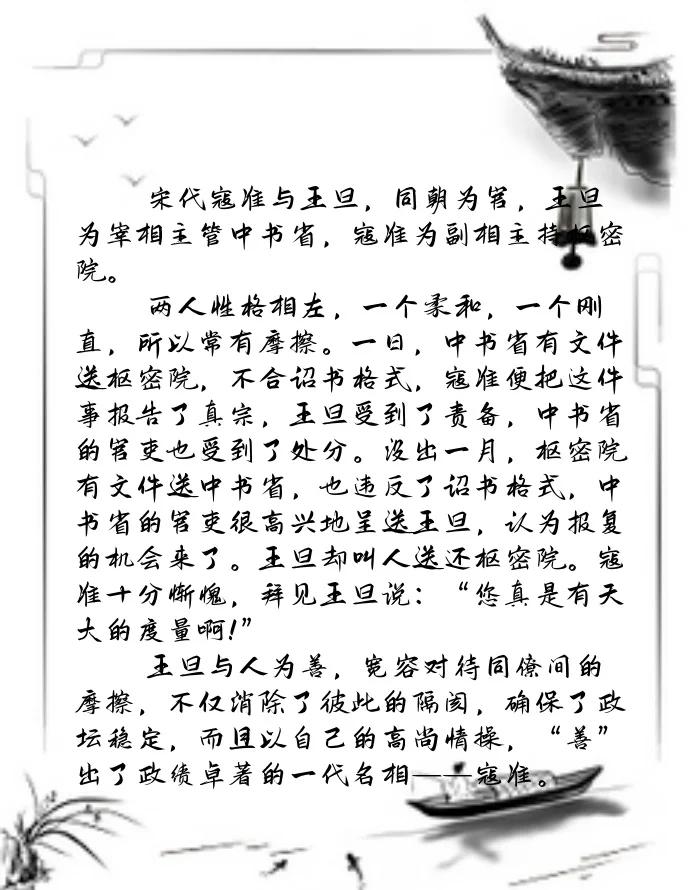 宋代寇准与王旦，同朝为官，王旦
为宰相主管中书省，寇准为副相主持枢密
院。
两人性格相左，一个柔和，一个刚
直，所以常有摩擦。一日，中书省有文件
送枢密院，不合诏书格式，寇准便把这件
事报告了真宗，王旦受到了责备，中书省
的官吏也受到了处分。没出一月，枢密院
有文件送中书省，也违反了诏书格式，中
书省的官吏很高兴地呈送王旦，认为报复
的机会来了。王旦却叫人送还枢密院。寇
准十分惭愧，拜见王旦说：“您真是有天
大的度量啊!”
王旦与人为善，宽容对待同僚间的
摩擦，不仅消除了彼此的隔阂，确保了政
坛稳定，而且以自己的高尚情操，“善”
出了政绩卓著的一代名相——寇准。